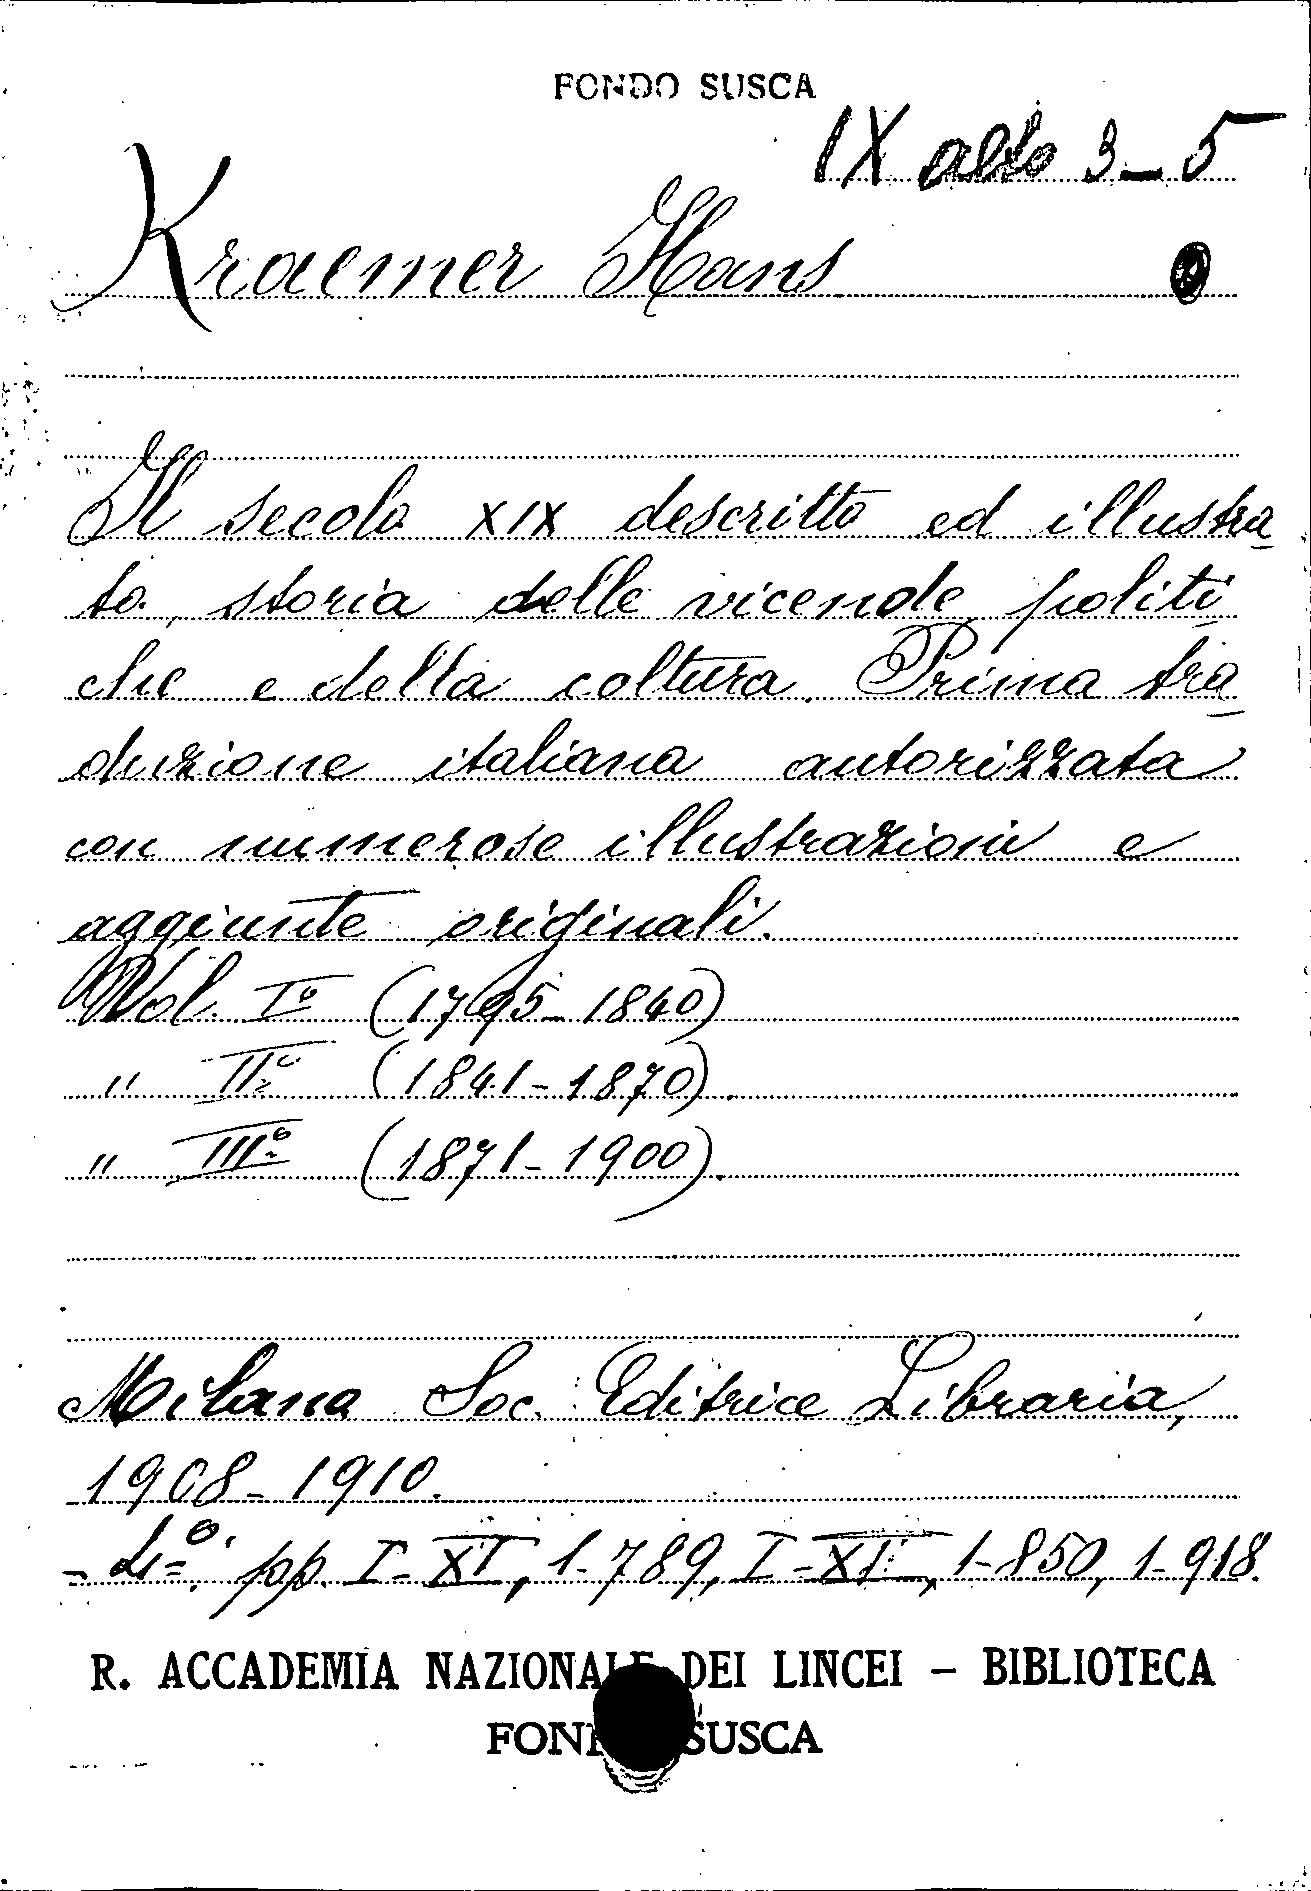 FONDO SUSCA
IX alto 3-5
Kraemer Hans
Il secolo XIX descritto ed illustra
to, storia delle vicende politi
che e della coltura. Prima tra
duzione italiana autorizzata
con numerose illustrazioni e
aggiunte originali.
Vol. I° (1795-1840)
" II° (1841-1870).
" III° (1871-1900).
Milano Soc. Editrice Libraria,
1908-1910.
- 4°. pp. I-XI, 1-789, I-XI, 1-850, 1-918.
R. ACCADEMIA NAZIONALE DEI LINCEI - BIBLIOTECA
FONDO SUSCA